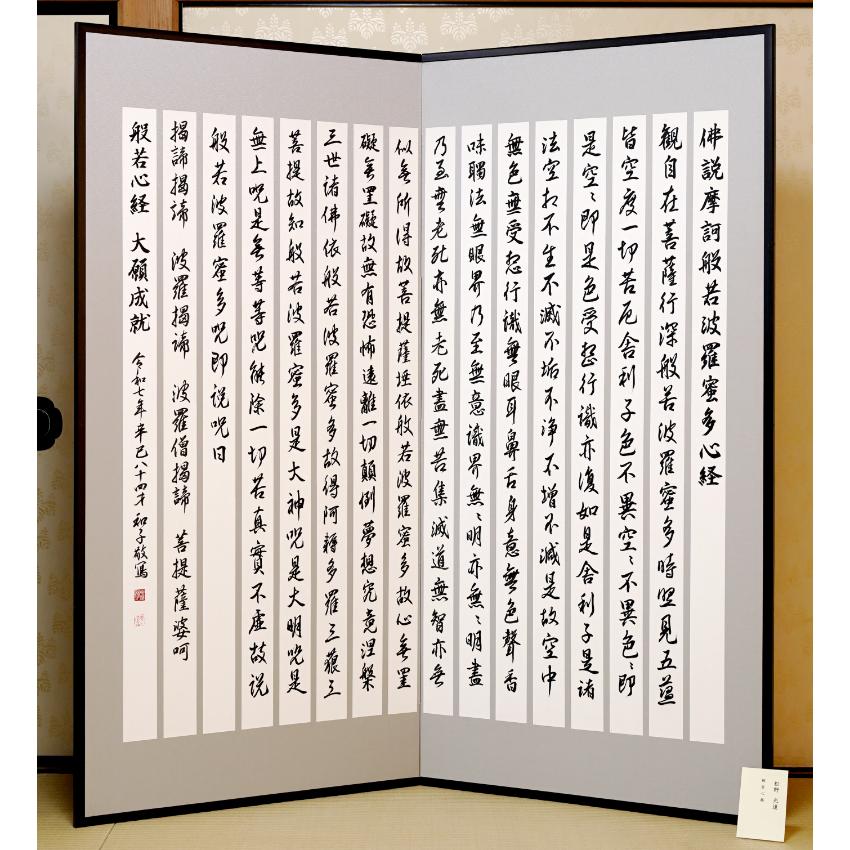 佛説摩訶般若波羅蜜多心経
觀自在菩薩行深般若波羅蜜多時照見五蘊
皆空度一切苦厄舎利子色不異空〻不異色〻即
是空〻即是色受想行識亦復如是舎利子是諸
法空相不生不滅不垢不浄不増不減是故空中
無色無受想行識無眼耳鼻舌身意無色聲香
味觸法無眼界乃至無意識界無〻明亦無〻明盡
乃至無老死亦無老死盡無苦集滅道無智亦無
以無所得故菩提薩埵依般若波羅蜜多故心無罣
礙無罣礙故無有恐怖遠離一切顛倒夢想究竟涅槃
三世諸佛依般若波羅蜜多故得阿耨多羅三藐三
菩提故知般若波羅蜜多是大神呪是大明呪是
無上呪是無等等呪能除一切苦真實不虚故説
般若波羅蜜多呪即説呪曰
揭諦揭諦 波羅揭諦 波羅僧揭諦 菩提薩婆呵
般若心経 大願成就 令和七年辛巳八十四才 和子敬寫
般若心経